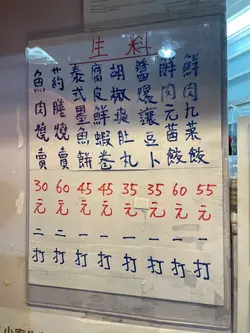 生料
鮮肉九菜餃55元一打
鮮肉元茜餃60元一打
醬爆讓豆卜35元一打
胡椒猪肚丸35元一打
腐皮鮮蝦卷45元一打
泰式墨魚餅45元一打
药膳燒賣60元二打
魚肉燒賣30元二打